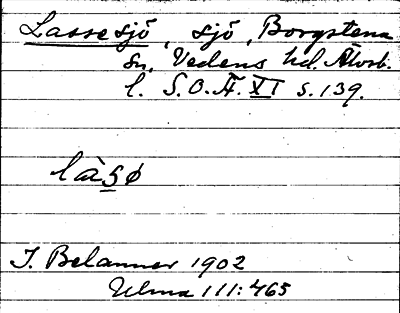 Lassesjö, sjö, Borgstena
sn, Vedens hd. Älvsb.
l. S.O.Ä. XI s. 139.
làsø
I. Belanner 1902
Ulma 111:465